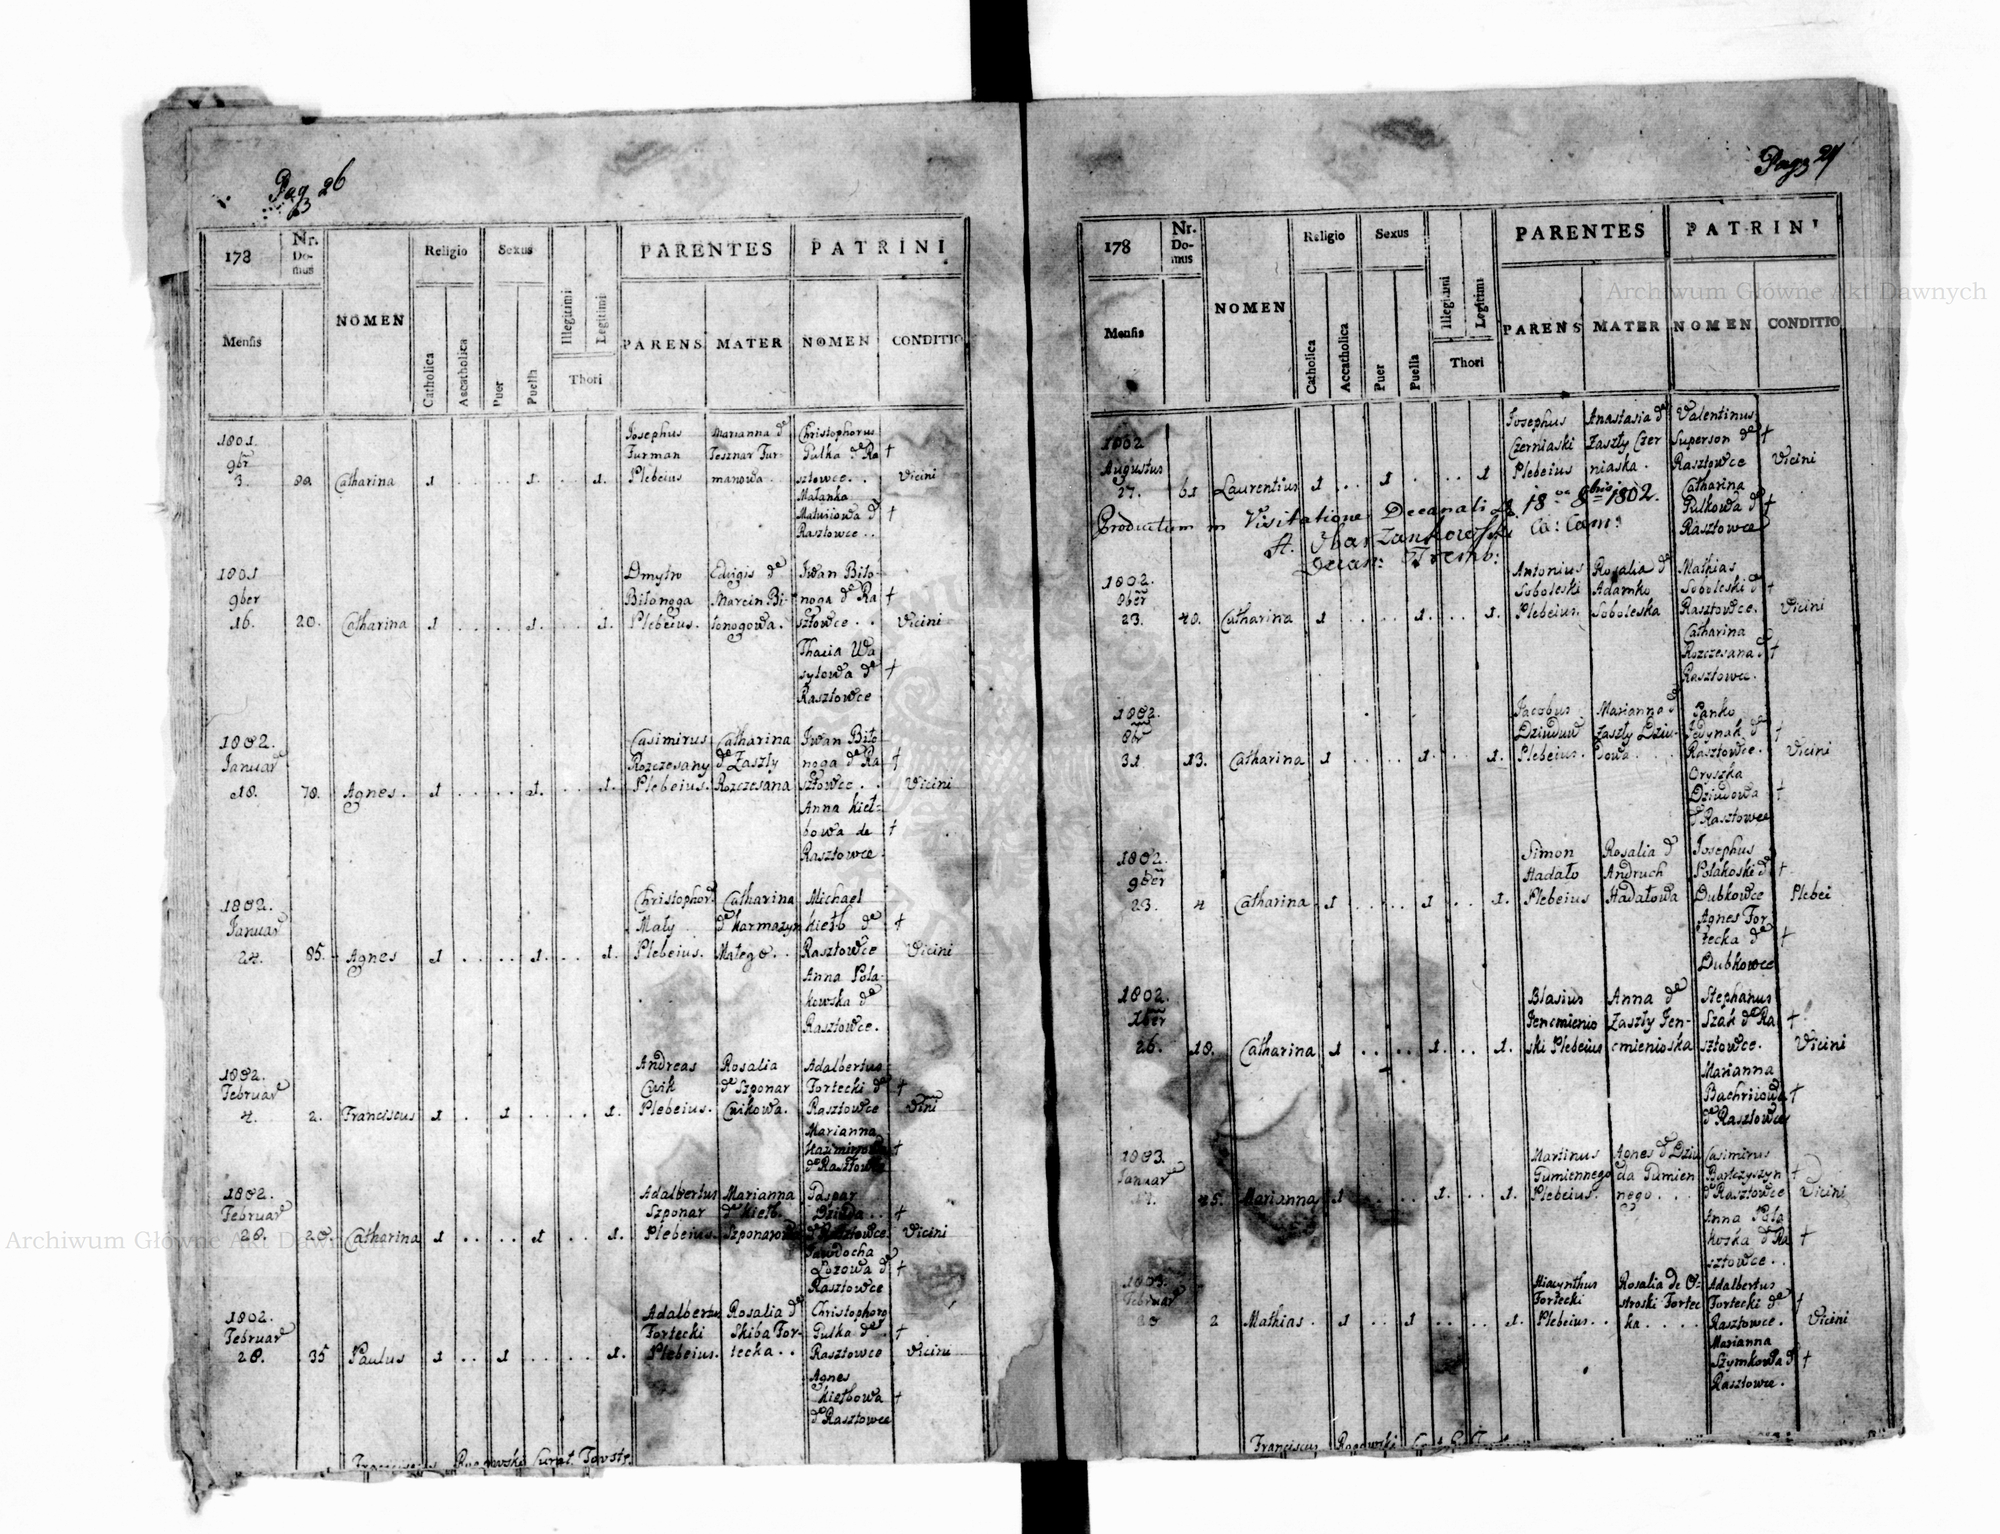 Pag 26
178
Nr. Do-mus
NOMEN
Religio
Sexus
Illegitimi
Legitimi
PARENTES
PATRINI
Mensis
Catholica
Accatholica
Puer
Puella
Thori
PARENS
MATER
NOMEN
CONDITIO
1801.
9br
3.
Catharina 1 . . . . 1. . . 1.
Josephus
Furman
Plebeius
Marianna de
Tesznar Fur-
manowa . .
Christophorus
Pulka de Ra
sztowce . .
Małanka
Matwiiowa de
Rasztowce . .
Vicini
1801
9ber
16. 20. Catharina 1 . . . . 1. . . 1.
Dmytro
Biłonoga
Plebeius.
Edvigis de
Marcin Bi-
łonogowa.
Iwan Biło-
noga de Ra
sztowce . .
Thacia Wa
sylowa de
Rasztowce
Vicini
1802.
Januar
70. Agnes. 1 . . . . 1. . . 1.
Casimirus
Rozczesany
Plebeius.
Catharina
de Zaszły
Rozczesana
Iwan Biło
noga de Ra
sztowce . .
Anna Kieł-
bowa de
Rasztowce.
Vicini
1802.
Januar
24. 85. Agnes 1 . . . . 1. . . 1.
Christophor
Mały
Plebeius.
Catharina
de Karmazyn
Małego . .
Michael
Kiełb de
Rasztowce
Anna Pola-
kowska de
Rasztowce.
Vicini
1802.
Februar
4. 2. Franciscus 1 . . 1 . . . . 1.
Andreas
Cwik
Plebeius.
Rosalia
de Szponar
Cwikowa.
Adalbertus
Fortecki de
Rasztowce
Marianna
Kazimirowa
de Rasztowce
Vicini
1802.
Februar
20. 20. Catharina 1 . . . . 1 . . 1.
Adalbertus
Szponar
Plebeius.
Marianna
de Kiełb.
Szponarowa
Gaspar
Dziuda . .
de Rasztowce
Jewdocha
Lozowa de
Rasztowce
Vicini
1802.
Februar
28. 35 Paulus 1 . . 1 . . . . 1.
Adalbertus
Fortecki
Plebeius.
Rosalia de
Skiba For-
tecka . .
Christophorg
Pulka de
Rasztowce
Agnes
Kiełbowa
de Rasztowce
Vicini
Franciscus Rogowski Curat
Pag 27
178
Nr. Do-mus
NOMEN
Religio
Sexus
Illegitimi
Legitimi
PARENTES
PATRINI
Mensis
Catholica
Accatholica
Puer
Puella
Thori
PARENS
MATER
NOMEN
CONDITIO
1802
Augustus
27. 61 Laurentius 1 . . . 1 . . . . 1
Josephus
Czerniaski
Plebeius
Anastasia de
Zaszły Czer
niaska.
Valentinus
Superson de
Rasztowce
Catharina
Pulkowa de
Rasztowce
Vicini
Productum in Visitatione Decanali 18 8bris 1802.
Decan: Tremb:
1802.
8ber
23. 40. Catharina 1 . . . . 1. . . 1.
Antonius
Soboleski
Plebeius.
Rosalia de
Adamko
Soboleska
Mathias
Soboleski de
Rasztowce.
Catharina
Rozczesana de
Rasztowce.
Vicini
1802.
8br
31. 13. Catharina 1 . . . . 1. . . 1.
Jacobus
Plebeius.
Marianna de
Zaszły Dziu-
Panko
Jedynak de
Rasztowce.
Oryszka
Dziudowa
de Rasztowce
Vicini
1802.
9ber
23. 4 Catharina 1 . . . . 1 . . 1.
Simon
Hadało
Plebeius
Rosalia de
Andruch
Hadałowa
Josephus
Polakoski de
Dubkowce
Agnes For
tecka de
Dubkowce
Plebei
1802.
26. 18. Catharina 1 . . . . 1. . . 1.
Blasius
Jencmienio
ski Plebeius
Anna de
Zaszły Jen-
cmienioska
Stephanus
Szak de Ra
sztowce.
Marianna
Bachriiowa
de Rasztowce
Vicini
1803.
Januar
45. Marianna 1 . . . . 1. . . 1.
Martinus
Gumiennego
Plebeius.
Agnes de Dziu
da Gumien
nego . . .
Casimirus
Barczyszyn
de Rasztowce
Anna Pola
koska de Ra
sztowce . .
Vicini
1803.
Februar
2 Mathias. 1 . . . 1 . . . . 1.
Hiacynthus
Fortecki
Plebeius. .
Rosalia de O-
stroski Fortec
ka. . . .
Adalbertus
Fortecki de
Rasztowce.
Marianna
Szymkowa de
Rasztowce.
Vicini
Franciscus Rogowski
Archiwum Główne Akt Dawnych